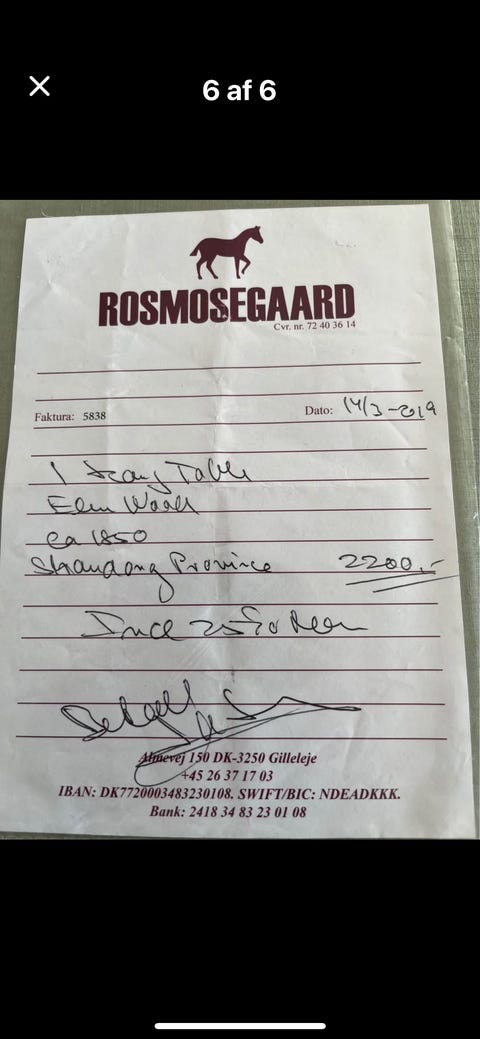 6 af 6
ROSMOSEGAARD
Cvr. nr. 72 40 36 14
Faktura: 5838
Dato: 14/3-2019
1 Table
Elm Wood
ca 1850
Shandong Province 2200,-
25%
Almevej 150 DK-3250 Gilleleje
+45 26 37 17 03
IBAN: DK7720003483230108. SWIFT/BIC: NDEADKKK.
Bank: 2418 34 83 23 01 08